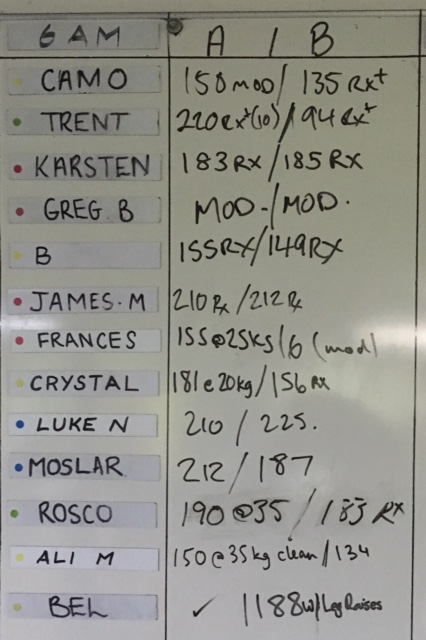 6 AM A / B
CAMO 150 MOD / 135 RX+
TRENT 220 RX+(10) / 94 RX+
KARSTEN 183 RX / 185 RX
GREG. B MOD - / MOD.
B 155RX / 149RX
JAMES. M 210 Rx / 212 Rx
FRANCES 155@25KS / 6 (mod)
CRYSTAL 181@20kg / 156 RX
LUKE N 210 / 225.
MOSLAR 212 / 187
ROSCO 190 @35 / 183 RX
ALI M 150@35kg clean / 134
BEL ✓ / 188 w/ Leg Raises